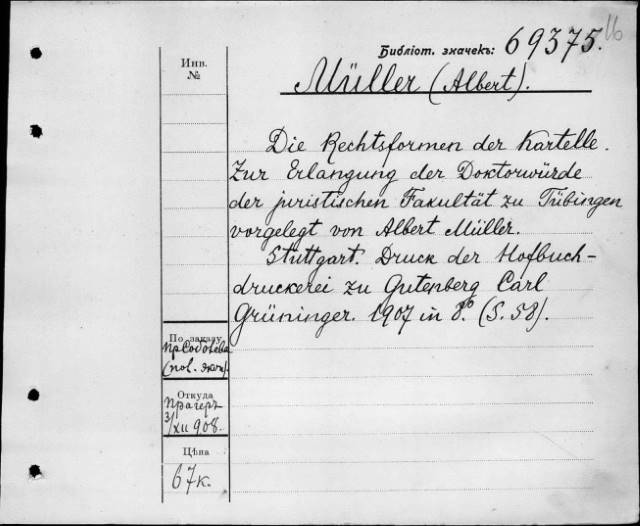 16
Библіот. значекъ: 69375.
Инв.
№
Müller (Albert).
Die Rechtsformen der Kartelle.
Zur Erlangung der Doktorwürde
der juristischen Fakultät zu Tübingen
vorgelegt von Albert Müller.
Stuttgart. Druck der Hofbuch-
druckerei zu Gutenberg Carl
Grüninger. 1907 in 8º. (S. 58).
По заказу
пр Соболева
(пол. экон).
Откуда
Прагеръ
3/XII 908.
Цѣна
67 к.